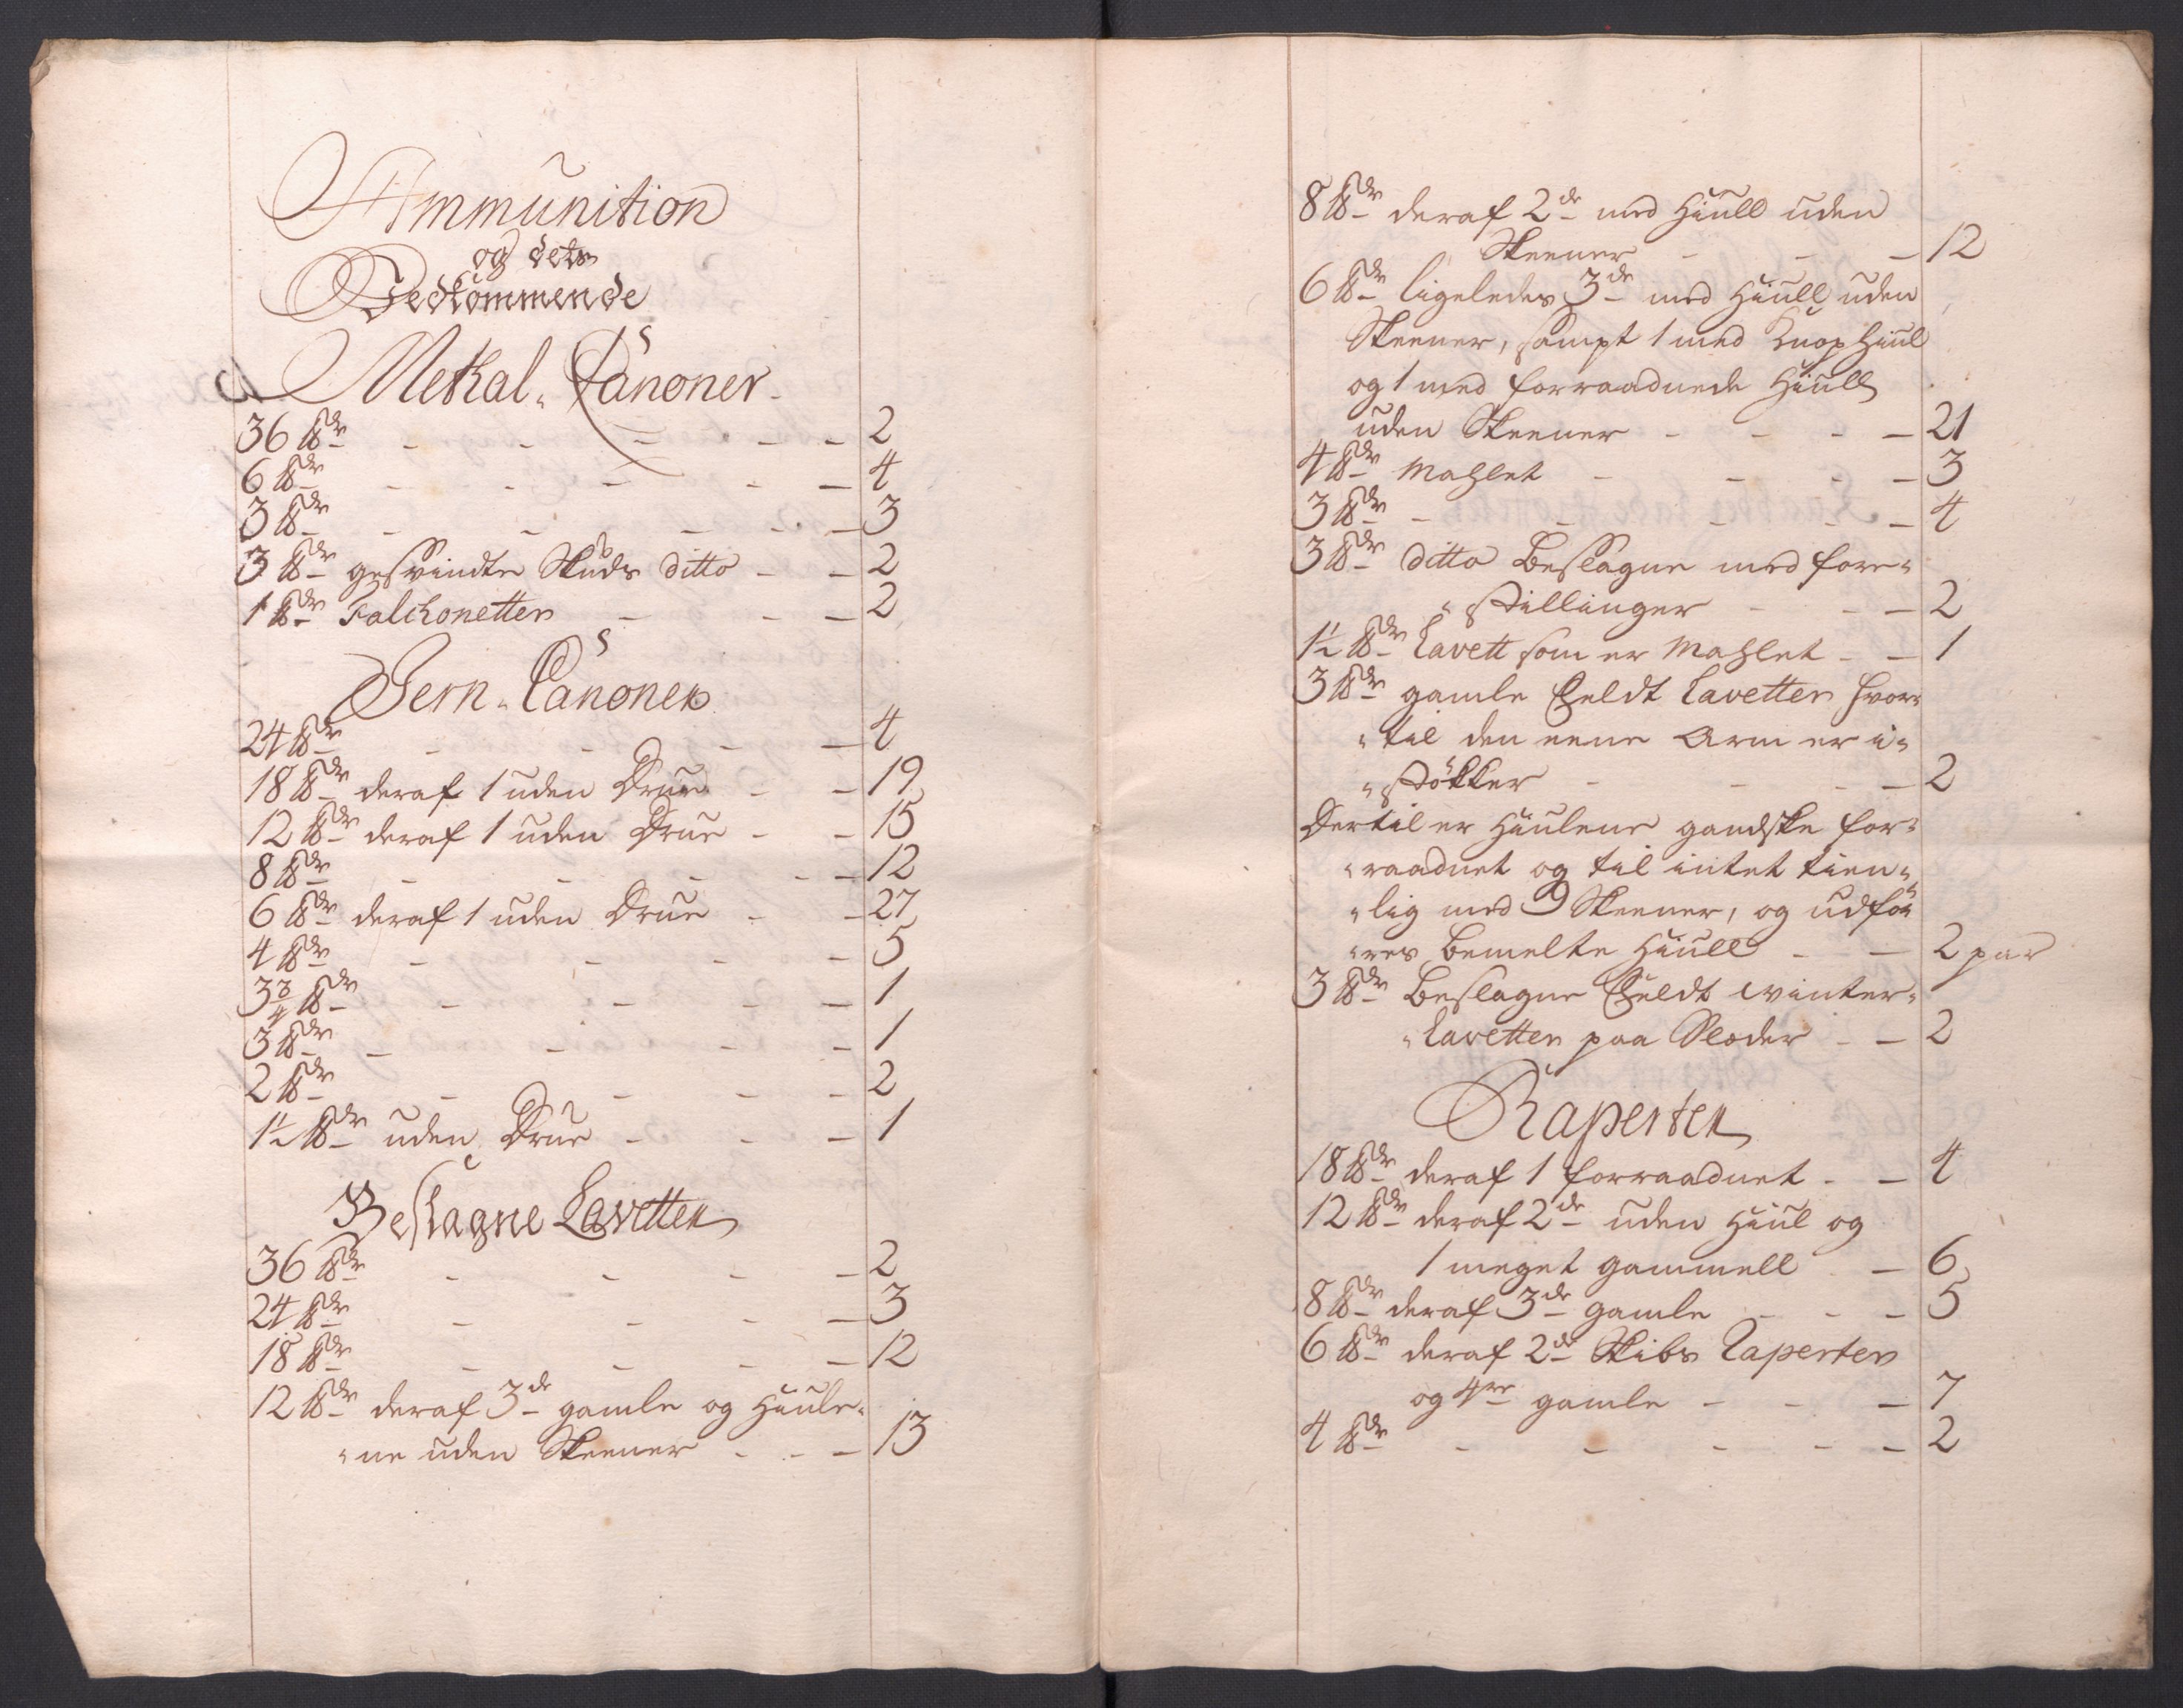 Ammunition
og dets
Vedkommende
Metal-Canoner
36 ℔dr - - - - - 2
6 ℔dr - - - - - 4
3 ℔dr - - - - - 3
3 ℔dr gesvindte Skuds ditto - - 2
1 ℔dr Falchonetter - - - 2
Jern-Canoner
24 ℔dr - - - - 4
18 ℔dr deraf 1 uden Drue - - 19
12 ℔dr deraf 1 uden Drue - - 15
8 ℔dr - - - - - 12
6 ℔dr deraf 1 uden Drue - - 27
4 ℔dr - - - - 5
3 3/4 ℔dr - - - - 1
3 ℔dr - - - - 1
2 ℔dr - - - - 2
1½ ℔dr uden Drue - - - 1
Beslagne Lavetter
36 ℔dr - - - - 2
24 ℔dr - - - - 3
18 ℔dr - - - - 12
12 ℔dr deraf 3de gamle og Hiule-
-ne uden Skeener - - - 13
8 ℔dr deraf 2de med Hiull uden
Skeener - - - 12
6 ℔dr ligeledes 3de med Hiull uden
Skeener, sampt 1 med Knop Hiul
og 1 med forraadnede Hiull
uden Skeener - - - - 21
4 ℔dr Mahlet - - - - 3
3 ℔dr - - - - - 4
3 ℔dr ditto Beslagne med fore-
-stillinger - - - 2
1½ ℔dr Lavett som er Mahlet - - 1
3 ℔dr gamle Feldt Lavetter hvor-
-til den eene Arm er i-
-støkker - - - - 2
Dertil er Hiulene gandske for-
-raadnet og til intet tien-
-lig med 9 Skeener, og udfø-
-res bemelte Hiull - - 2 par
3 ℔dr Beslagne Feldt winter-
-Lavetter paa Sleder - - 2
Raperter
18 ℔dr deraf 1 forraadnet - - 4
12 ℔dr deraf 2de uden Hiul og
1 meget gammell - 6
8 ℔dr deraf 3de gamle - - - 5
6 ℔dr deraf 2de Skibs Raperter
og 4re gamle - - - 7
4 ℔dr - - - - - 2